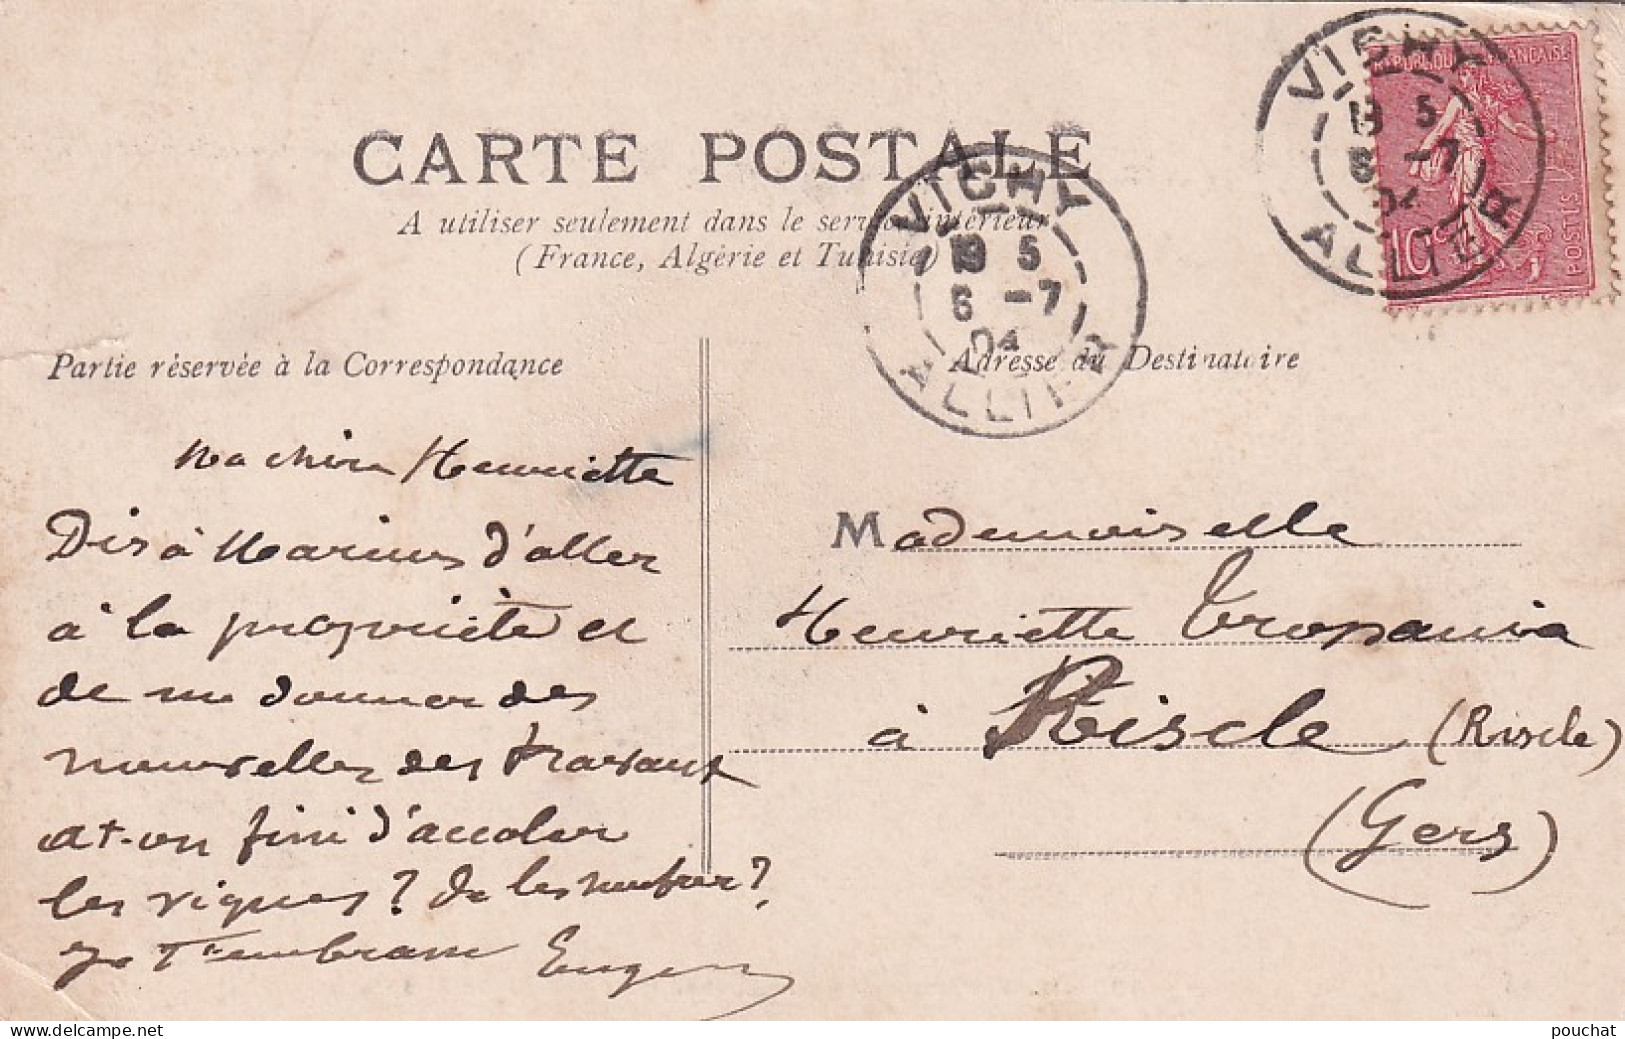 CARTE POSTALE
A utiliser seulement dans le service intérieur
(France, Algérie et Tunisie)
VICHY
19 5
6 -7
04
ALLIER
VICHY
19 5
6 -7
04
ALLIER
REPUBLIQUE FRANÇAISE
10c
POSTES
Partie réservée à la Correspondance
Adresse du Destinataire
Ma chère Henriette
Dis à Marius d'aller
à la propriété et
de me donner des
nouvelles des travaux
at-on fini d'accoler
les vignes? de les soufrer?
Je t'embrasse Eugène
Mademoiselle
Henriette
à Riscle (Riscle)
(Gers)
pouchat
www.delcampe.net